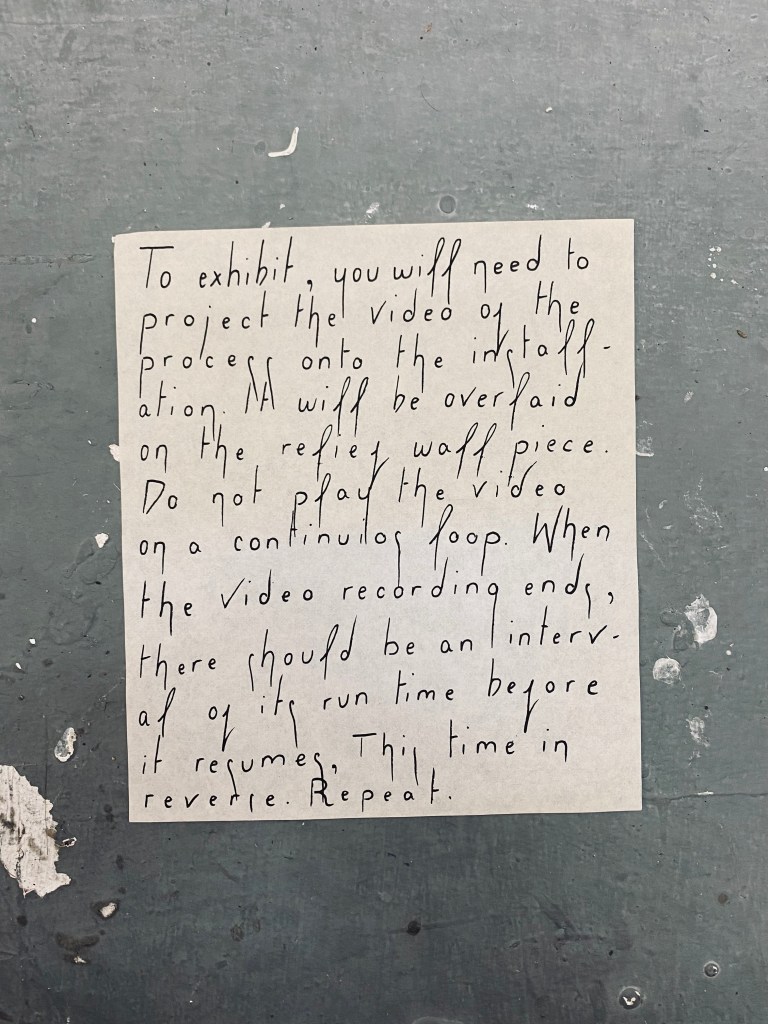 To exhibit, you will need to
project the video of the
process onto the install-
ation. It will be overlaid
on the relief wall piece.
Do not play the video
on a continuios loop. When
the video recording ends,
there should be an interv-
al of its run time before
it resumes, This time in
reverse. Repeat.